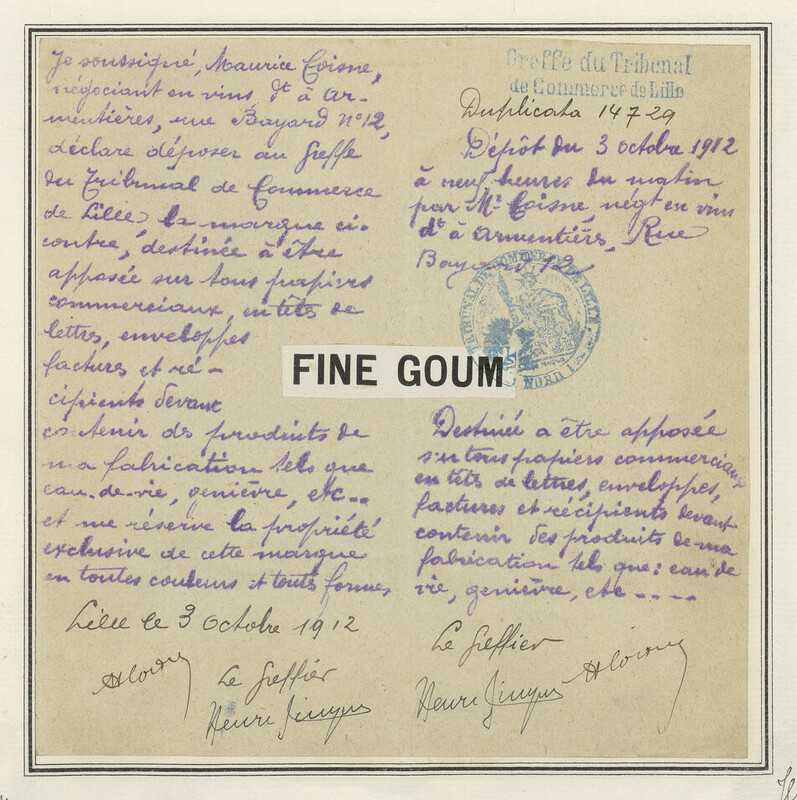 Je soussigné, Maurice Coisne,
négociant en vins, dt à Ar-
mentières, rue Bayard N°12,
déclare déposer au Greffe
du Tribunal de Commerce
de Lille, la marque ci-
contre, destinée à être
apposée sur tous papiers
commerciaux, en têts de
lettres, enveloppes
factures et ré-
cipients devant
contenir des produits de
ma fabrication tels que
eau-de-vie, genièvre, etc...
et me réserve la propriété
exclusive de cette marque
en toutes couleurs et toutes formes,
Lille le 3 Octobre 1912
Le Greffier
Henri
FINE GOUM
Greffe du Tribunal
de Commerce de Lille
Duplicata 14729
Dépôt du 3 octobre 1912
à neuf heures du matin
par Mr Coisne, négt en vins
dt à Armentières, Rue
Bayard 12
TRIBUNAL DE COMMERCE DE LILLE
NORD
Destinée a être apposée
sur tous papiers commerciaux
en têts de lettres, enveloppes,
factures et récipients devant
contenir des produits de ma
fabrication tels que: eau de
vie, genièvre, etc .....
Le Greffier
Henri